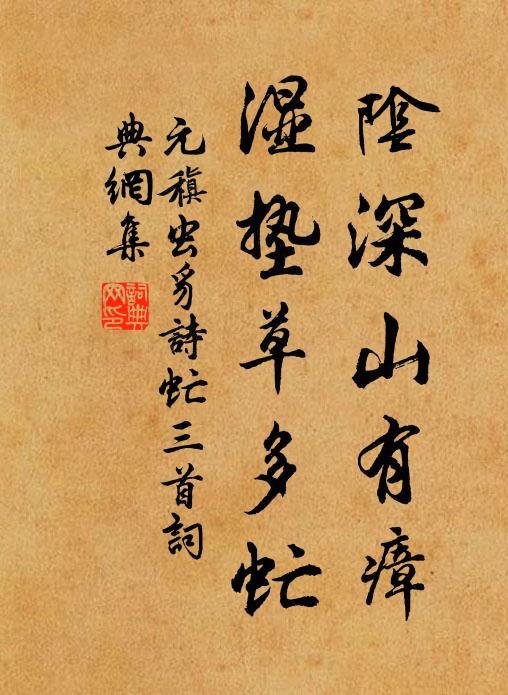 陰深山有瘴
濕墊草多虻
元稹虫豸詩虻三首詞
典網集
詞典網印